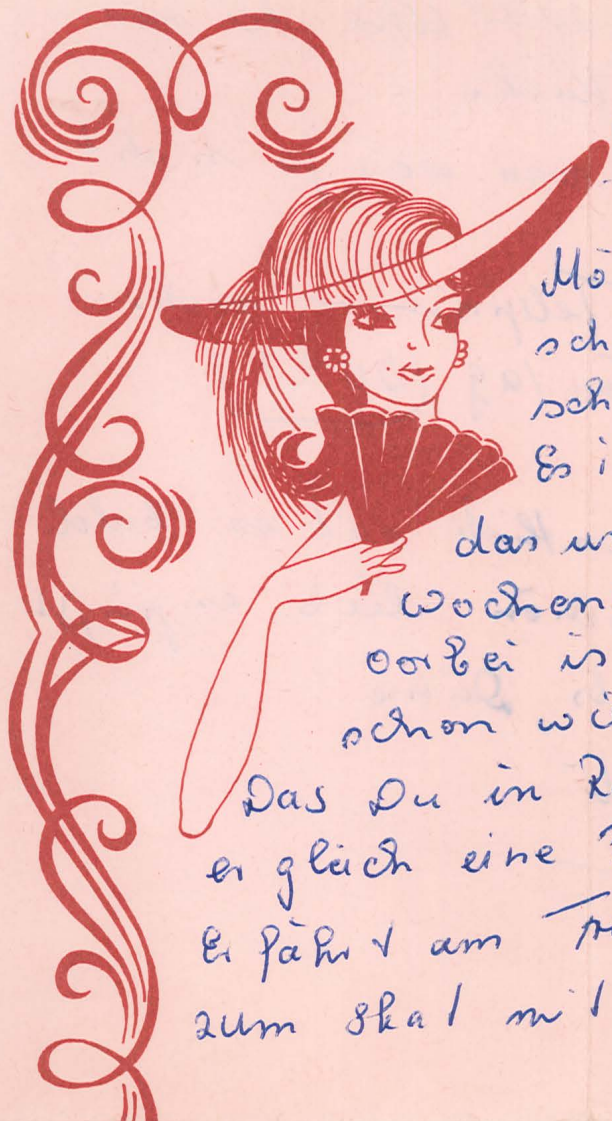 Mö
sch
sch
Es i
das un
wochen
vorbei is
schon wi
Das Du in R
er gleich eine
Er fährt am Fr
zum Skat mit